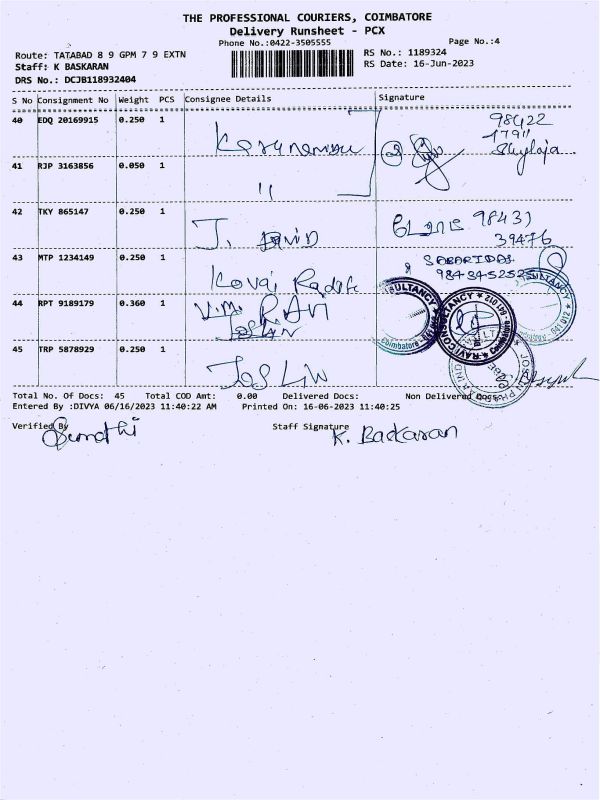 THE PROFESSIONAL COURIERS, COIMBATORE
Delivery Runsheet - PCX
Phone No.:0422-3505555
Page No.:4
Route: TATABAD 8 9 GPM 7 9 EXTN
RS No.: 1189324
Staff: K BASKARAN
RS Date: 16-Jun-2023
DRS No.: DCJB118932404
S No Consignment No Weight PCS Consignee Details Signature
40 EDQ 20169915 0.250 1
98422
17911
Shylaja
41 RJP 3163856 0.050 1
"
42 TKY 865147 0.250 1
J. David
98431
39476
43 MTP 1234149 0.250 1
Kovai
SABARIDAS
44 RPT 9189179 0.360 1
V.M. RAVI
RAVI CONSULTANCY
Coimbatore
641 012
45 TRP 5878929 0.250 1
Total No. Of Docs: 45 Total COD Amt: 0.00 Delivered Docs: Non Delivered Docs:
Entered By :DIVYA 06/16/2023 11:40:22 AM Printed On: 16-06-2023 11:40:25
Verified By
Sumathi
Staff Signature
K. Baskaran